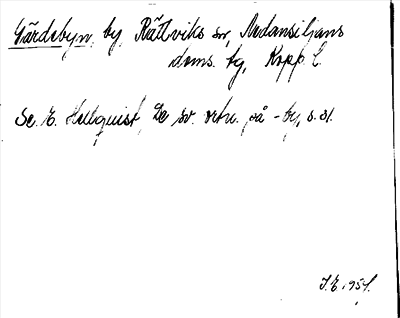 Gärdebyn, by, Rättviks sn, Nedansiljans
doms. tg, Kopp. l.
Se. E. Hellquist, De sv. ortn. på -by, s. 31.
J.E. 1951.